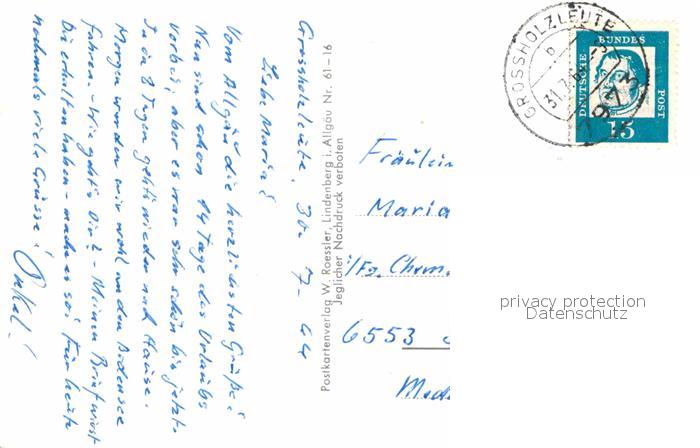 Grossholzleute, 30. 7. 64
Liebe Maria!
Vom Allgäu die herzlichsten Grüße!
Nun sind schon 14 Tage des Urlaubs
vorbei, aber es war sehr schön bis jetzt.
In 8 Tagen geht's wieder nach Hause.
Morgen werden wir wohl an den Bodensee
fahren. - Wie geht's Dir? - Meinen Brief wirst
Du erhalten haben - mach es gut für heute
nochmals viele Grüsse!
Onkel!
Postkartenverlag W. Roessler, Lindenberg i. Allgäu Nr. 61-16
Jeglicher Nachdruck verboten
Fräulein
Maria
i/Fa. Chem.
6553
GROSSHOLZLEUTE
31.7.64
DEUTSCHE BUNDESPOST
15
privacy protection
Datenschutz